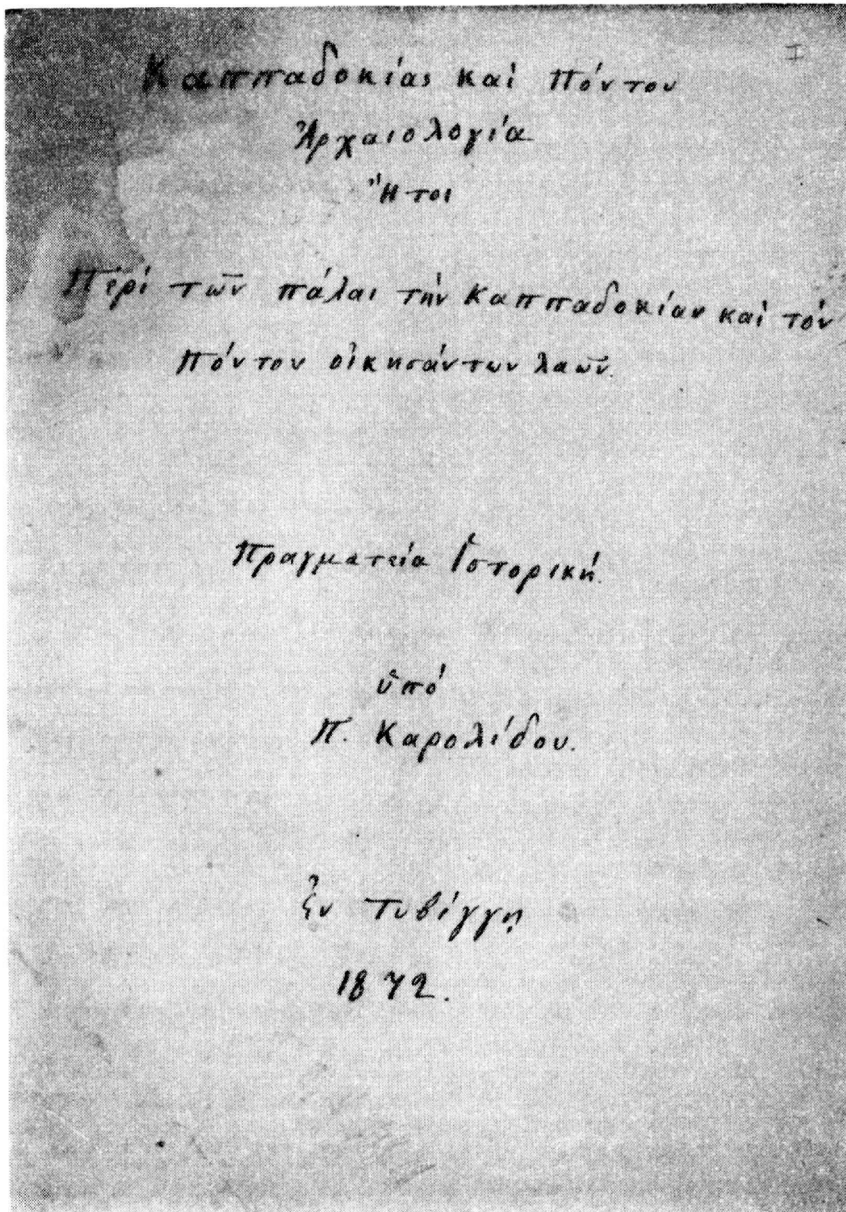 I
Καππαδοκίας καὶ Πόντου
Ἀρχαιολογία
Ἤτοι
Περὶ τῶν πάλαι τὴν Καππαδοκίαν καὶ τὸν
Πόντον οἰκησάντων λαῶν.
Πραγματεία Ἱστορική.
ὑπὸ
Π. Καρολίδου.
Ἐν Τυβίγγῃ
1872.